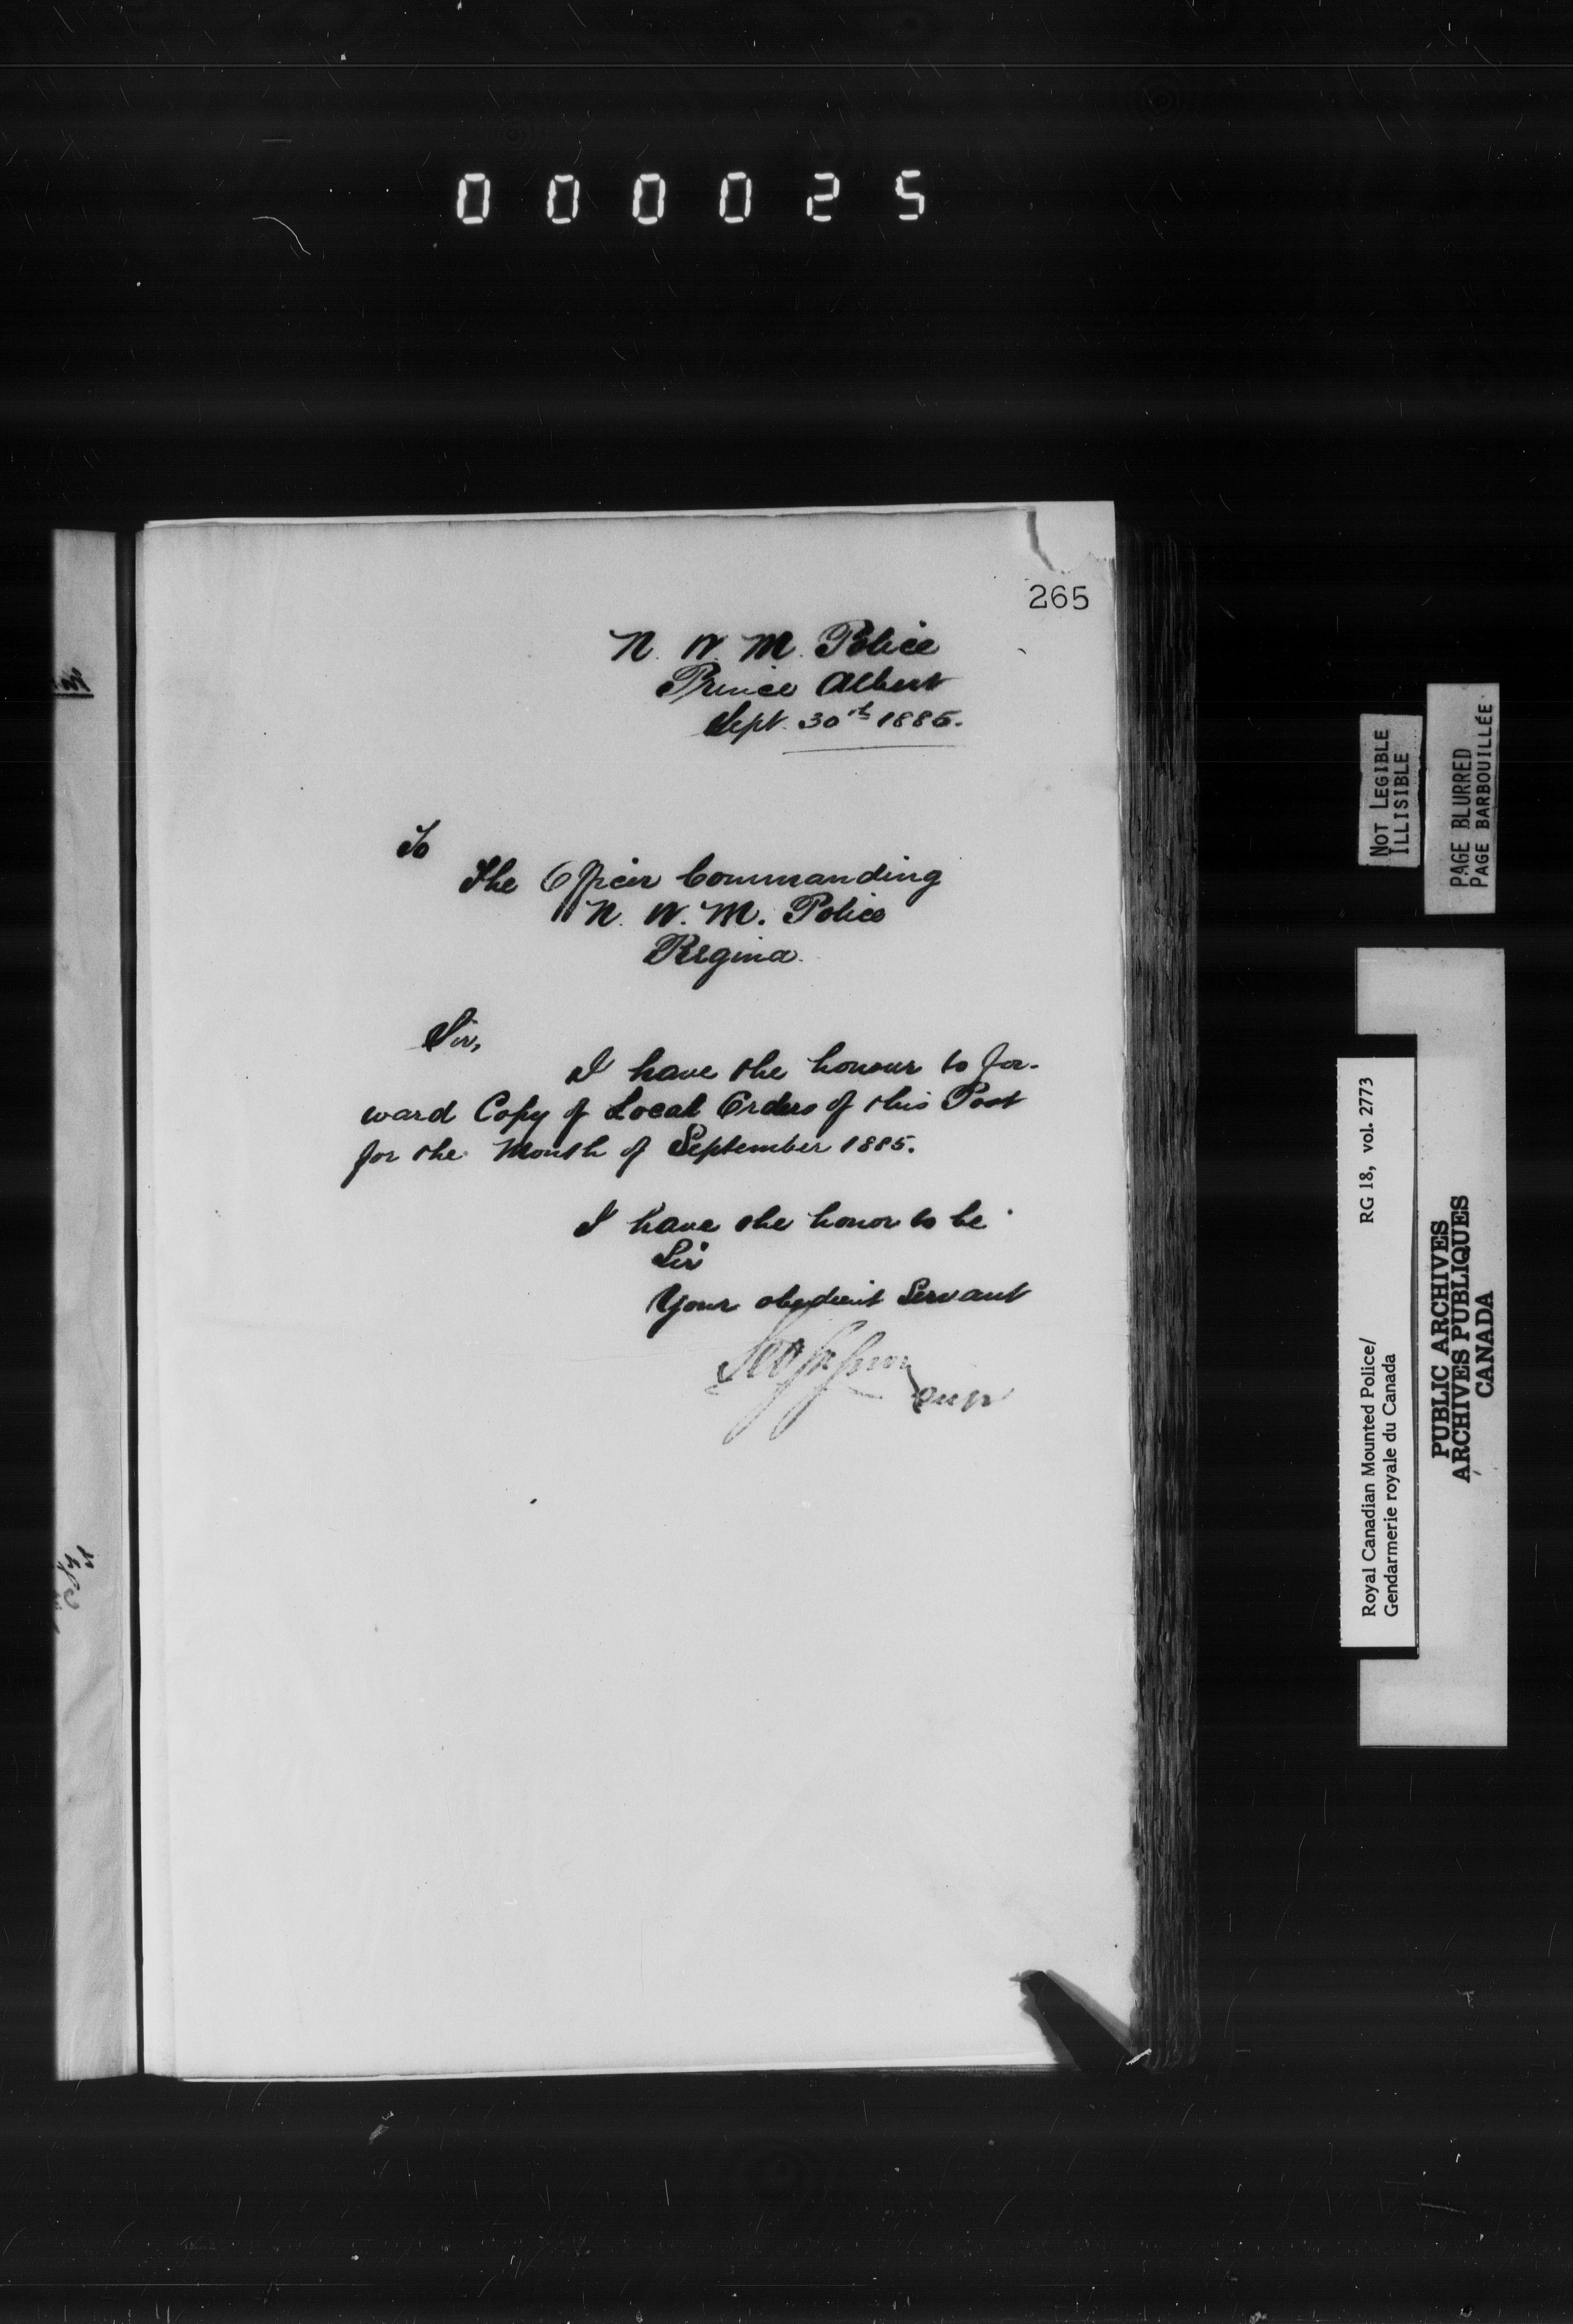 000025
265
N. W. M. Police
Prince Albert
Sept. 30th 1885.
To
The Officer Commanding
N. W. M. Police
Regina.
Sir,
I have the honour to for-
ward Copy of Local Orders of this Post
for the Month of September 1885.
I have the honor to be
Sir
Your obedient Servant
Supt
NOT LEGIBLE
ILLISIBLE
PAGE BLURRED
PAGE BARBOUILLÉE
Royal Canadian Mounted Police/ RG 18, vol. 2773
Gendarmerie royale du Canada
PUBLIC ARCHIVES
ARCHIVES PUBLIQUES
CANADA